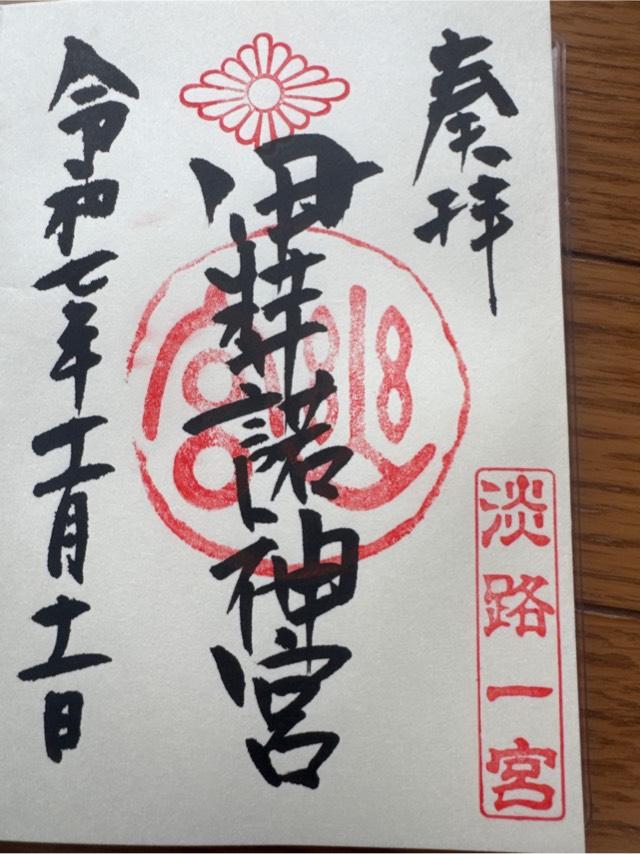 奉拝
伊弉諾神宮
令和七年十一月十一日
淡路一宮